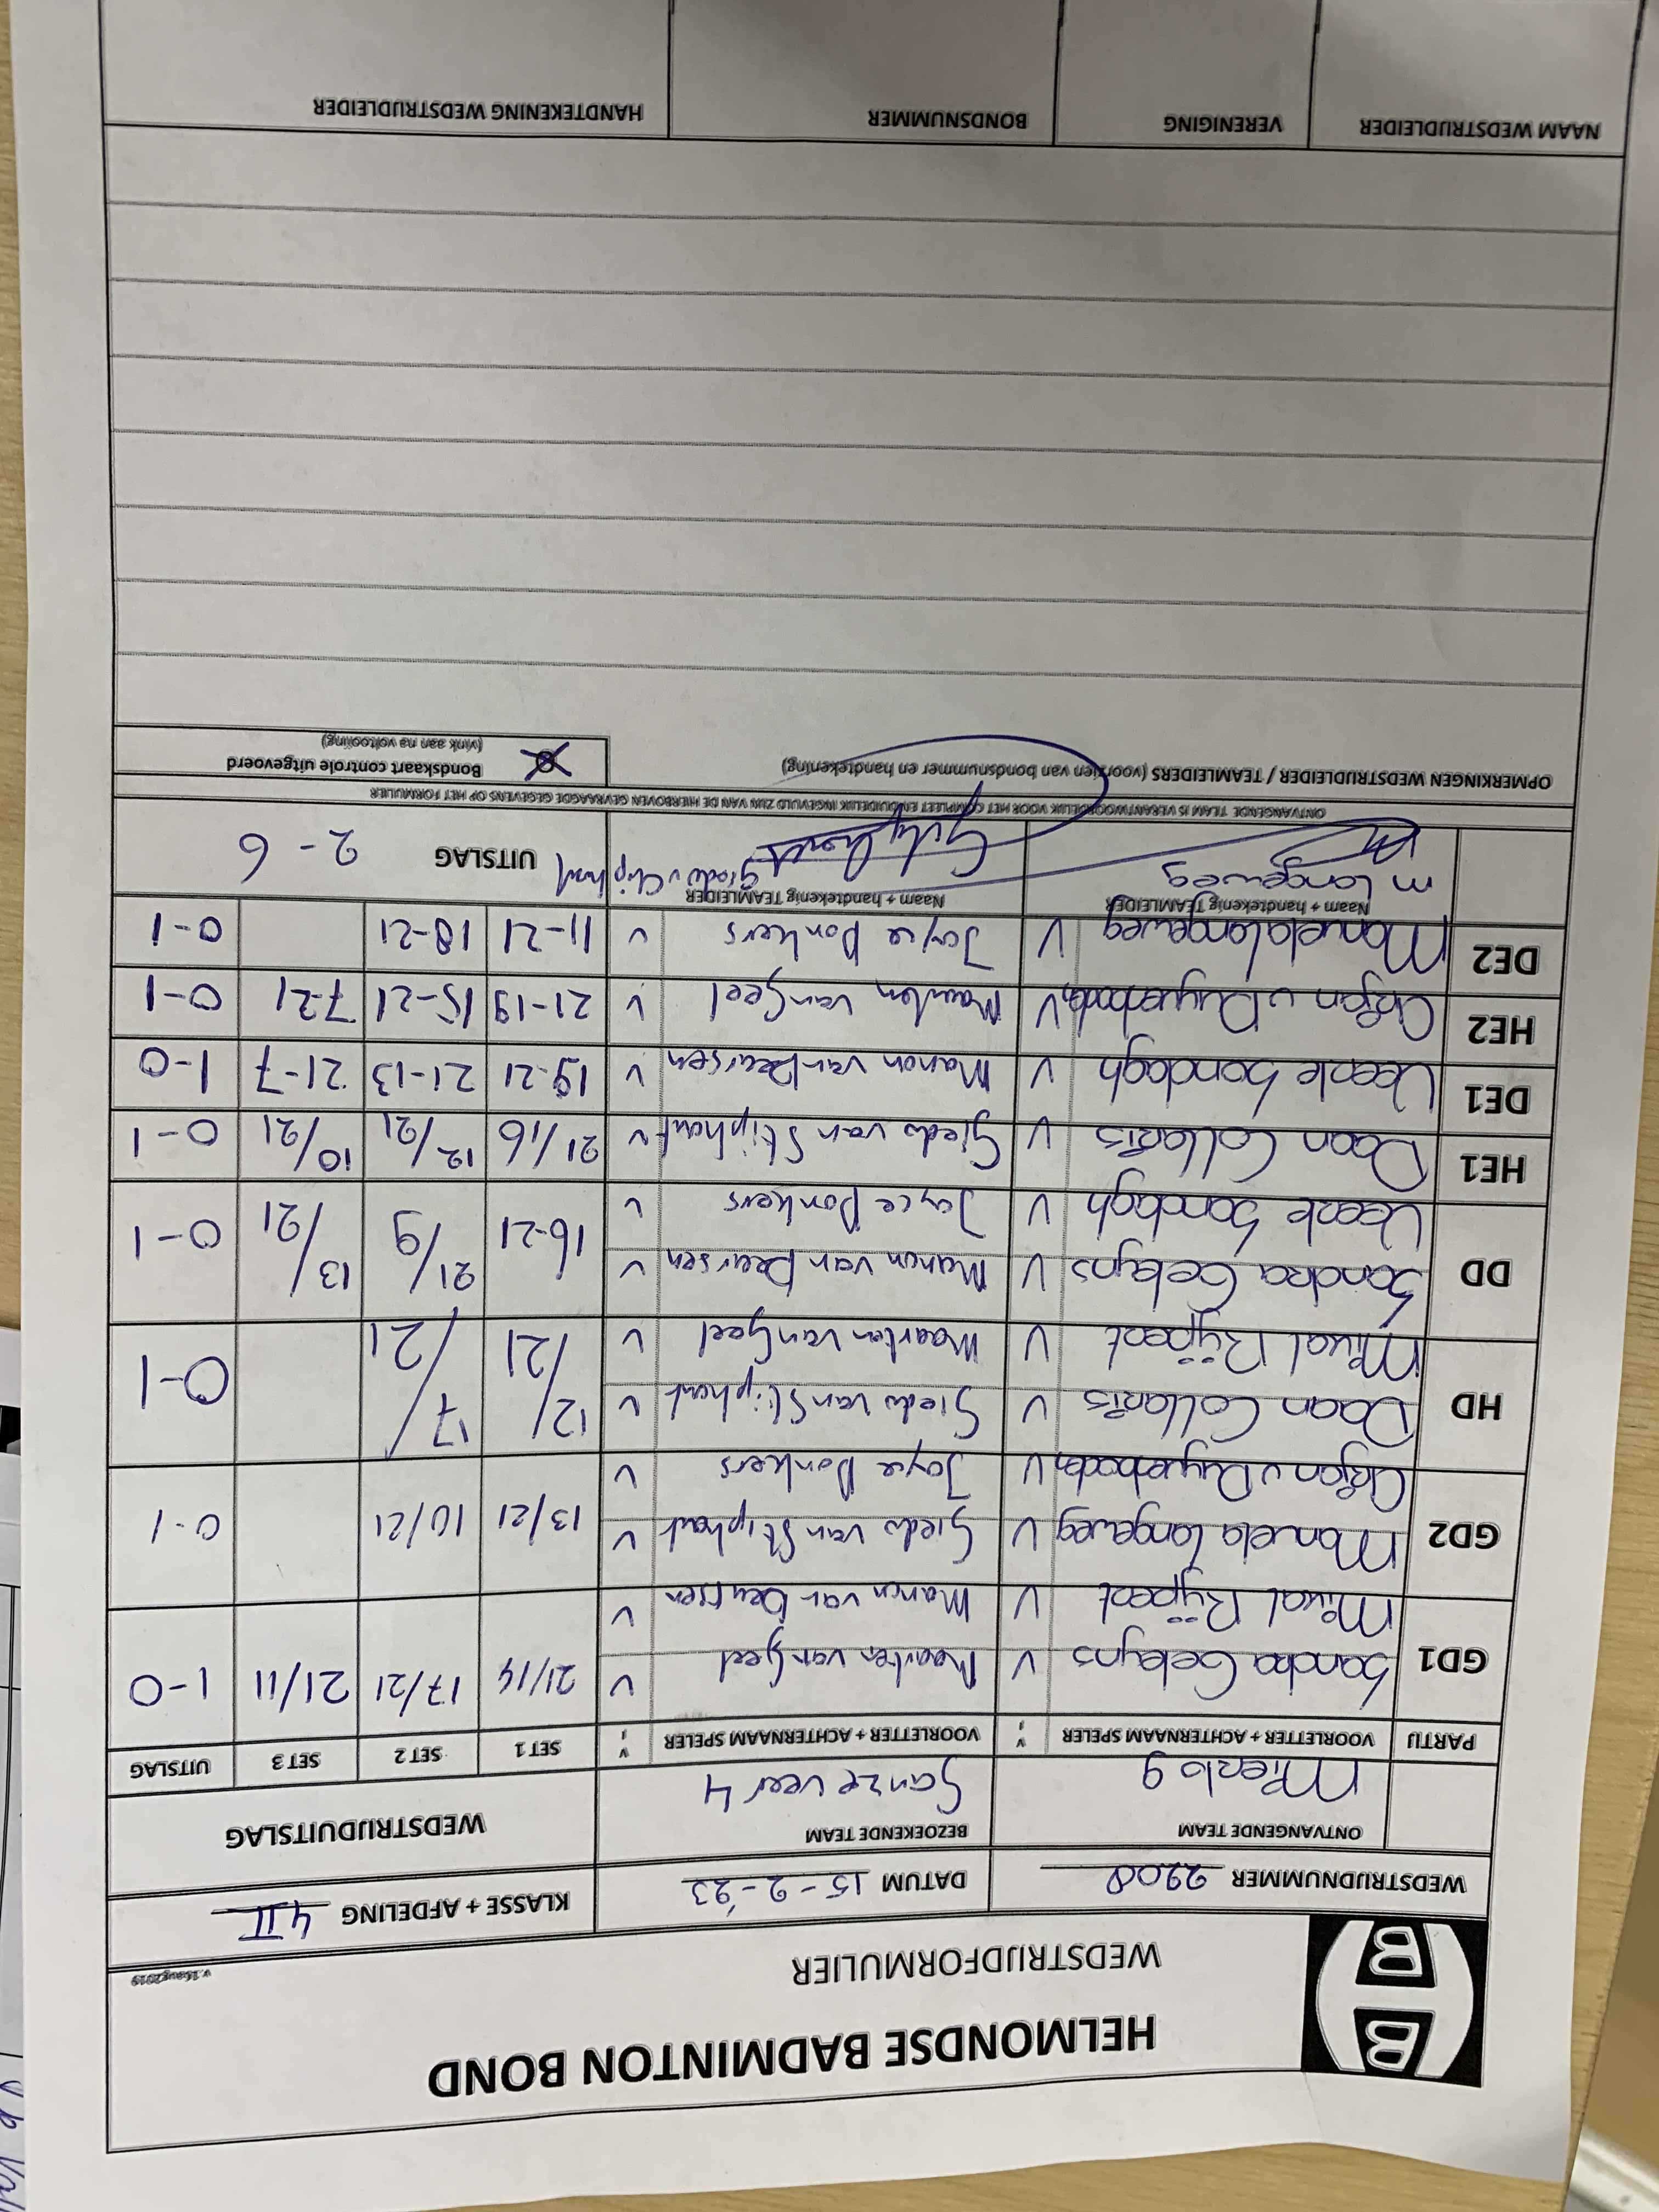 HELMONDSE BADMINTON BOND
WEDSTRIJDFORMULIER
v.16aug2019
WEDSTRIJDNUMMER 2208
DATUM 15-2-'23
KLASSE + AFDELING 4 II
ONTVANGENDE TEAM
Mierlo 9
BEZOEKENDE TEAM
Ganzeveer 4
WEDSTRIJDUITSLAG
PARTIJ VOORLETTER + ACHTERNAAM SPELER VOORLETTER + ACHTERNAAM SPELER SET 1 SET 2 SET 3 UITSLAG
GD1 Sandra Ceelegns V Maarten van Geel V 21/14 17/21 21/11 1-0
Mixal Rijpert V Manon van Deursen V
GD2 Manuela Langeweg V Giedo van Stiphout V 13/21 10/21 0-1
Arjan v Duynhoven V Joyce Donkers V
HD Daan Collaris V Giedo van Stiphout V 12/21 17/21 0-1
Mixal Rijpert V Maarten van Geel V
DD Sandra Ceelegns V Manon van Deursen V 16-21 21/9 13/21 0-1
Veerle Sondagh V Joyce Donkers V
HE1 Daan Collaris V Giedo van Stiphout V 21/16 12/21 10/21 0-1
DE1 Veerle Sondagh V Manon van Deursen V 19-21 21-13 21-7 1-0
HE2 Arjan v Duynhoven V Maarten van Geel V 21-19 15-21 7-21 0-1
DE2 Manuela Langeweg V Joyce Donkers V 11-21 18-21 0-1
Naam + handtekenig TEAMLEIDER
m Langeweg
Naam + handtekenig TEAMLEIDER
Giedo v Stiphout
UITSLAG 2-6
ONTVANGENDE TEAM IS VERANTWOORDELIJK VOOR HET COMPLEET EN DUIDELIJK INGEVULD ZIJN VAN DE HIERBOVEN GEVRAAGDE GEGEVENS OP HET FORMULIER
OPMERKINGEN WEDSTRIJDLEIDER / TEAMLEIDERS (voorzien van bondsnummer en handtekening)
Bondskaart controle uitgevoerd
(vink aan na voltooiing)
NAAM WEDSTRIJDLEIDER VERENIGING BONDSNUMMER HANDTEKENING WEDSTRIJDLEIDER